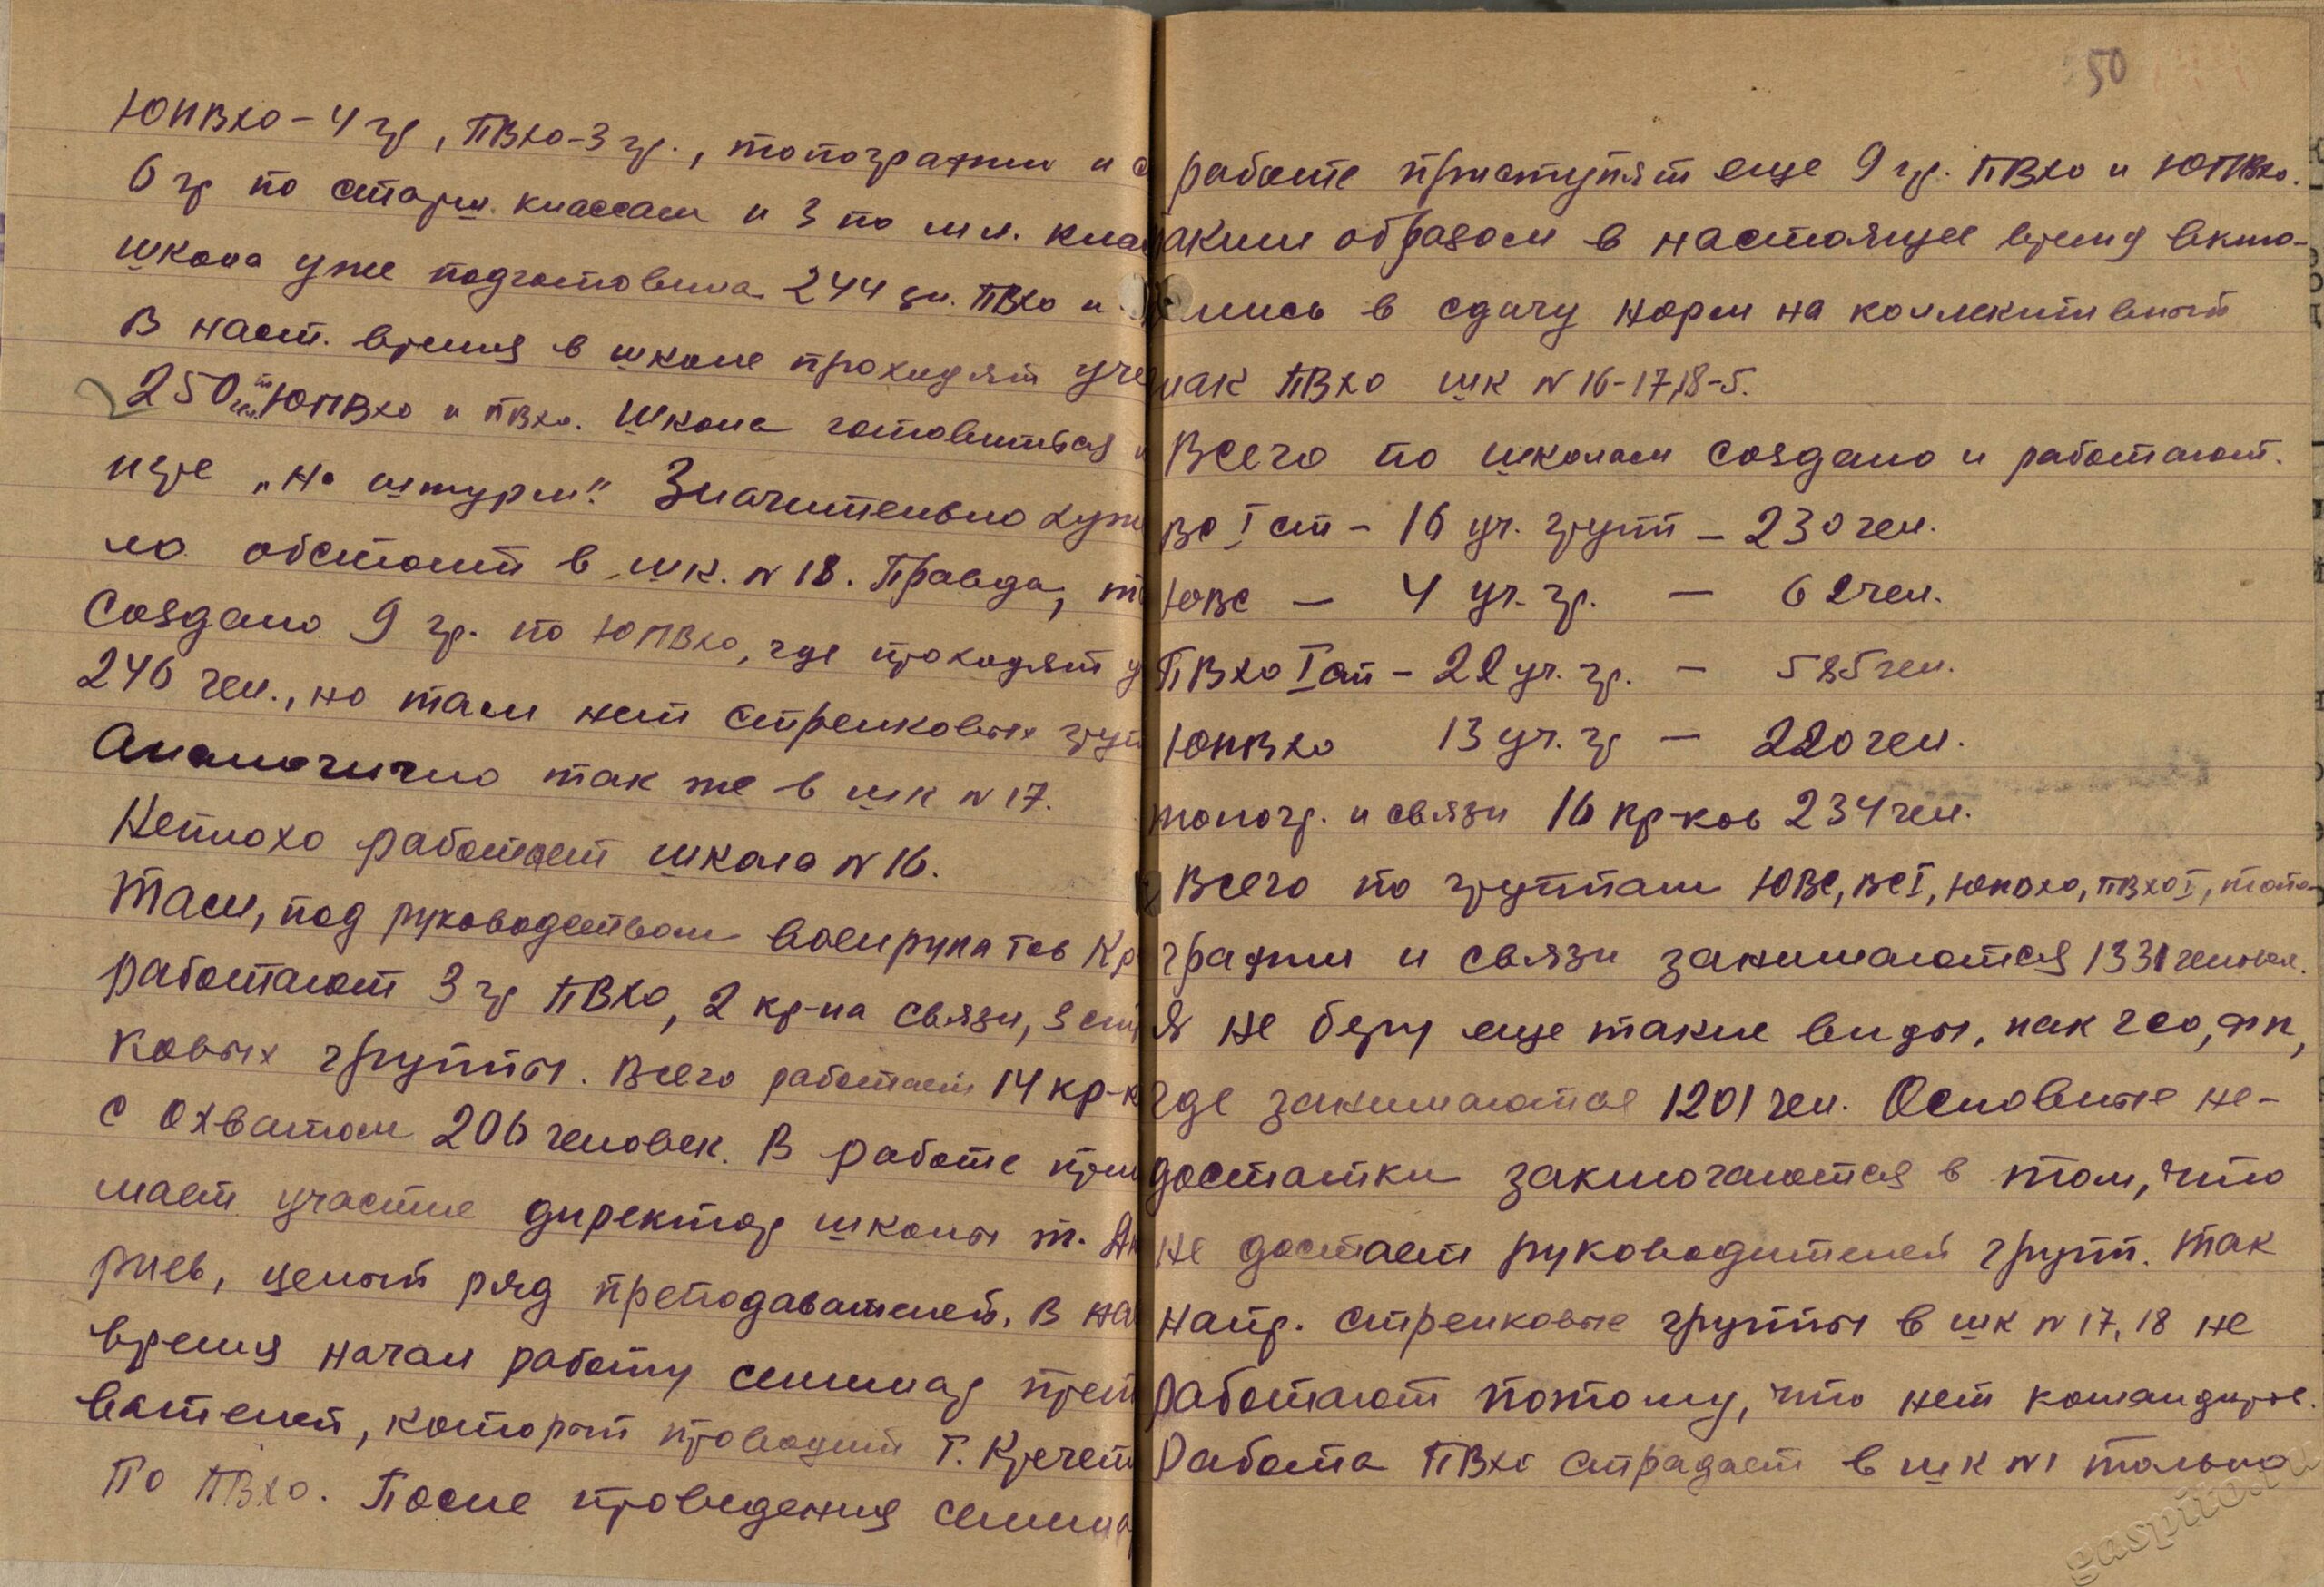 ЮПВХО - 4 гр, ПВХО-3 гр., топографии и с
6 гр по старш. классам и 3 по мл. кла
школа уже подготовила 244 зн. ПВХО и
В наст. время в школе проходят уче
250 чел. ЮПВХО и ПВХО. Школа готовиться
игре „на штурм". Значительно хуже
ло обстоит в шк. N 18. Правда, т
создано 9 гр. по ЮПВХО, где проходят у
246 чел., но там нет стрелковых груп
Аналогично так же в шк N 17.
Неплохо работает школа N 16.
Там, под руководством военрука тов Кр
работают 3 гр ПВХО, 2 кр-ка связи, 3 ст
ковых группы. Всего работает 14 кр-к
с охватом 206 человек. В работе прини
мает участие директор школы т. Ан
риев, целый ряд преподавателей. В на
время начал работу семинар преп
вателей, который проводит т. Кречет
по ПВХО. После проведения семина
50
работе приступят еще 9 гр. ПВХО и ЮПВХО.
таким образом в настоящее время вклю-
лись в сдачу норм на коллективный
знак ПВХО шк N 16-17,18-5.
Всего по школам создано и работают.
ВС I ст - 16 уч. групп - 230 чел.
ЮВС - 4 уч. гр. - 62 чел.
ПВХО I ст - 22 уч. гр. - 585 чел.
ЮПВХО 13 уч. гр - 220 чел.
топогр. и связи 16 кр-ков 234 чел.
Всего по группам ЮВС, ВС I, ЮПВХО, ПВХО I, топо-
графии и связи занимаются 1331 человек.
Я не беру еще такие виды, как ГСО,
где занимаются 1201 чел. Основные не-
достатки заключаются в том, что
не достает руководителей групп. Так
напр. стрелковые группы в шк N 17, 18 не
работают потому, что нет командиров.
Работа ПВХО страдает в шк N1 только
gaspito.ru